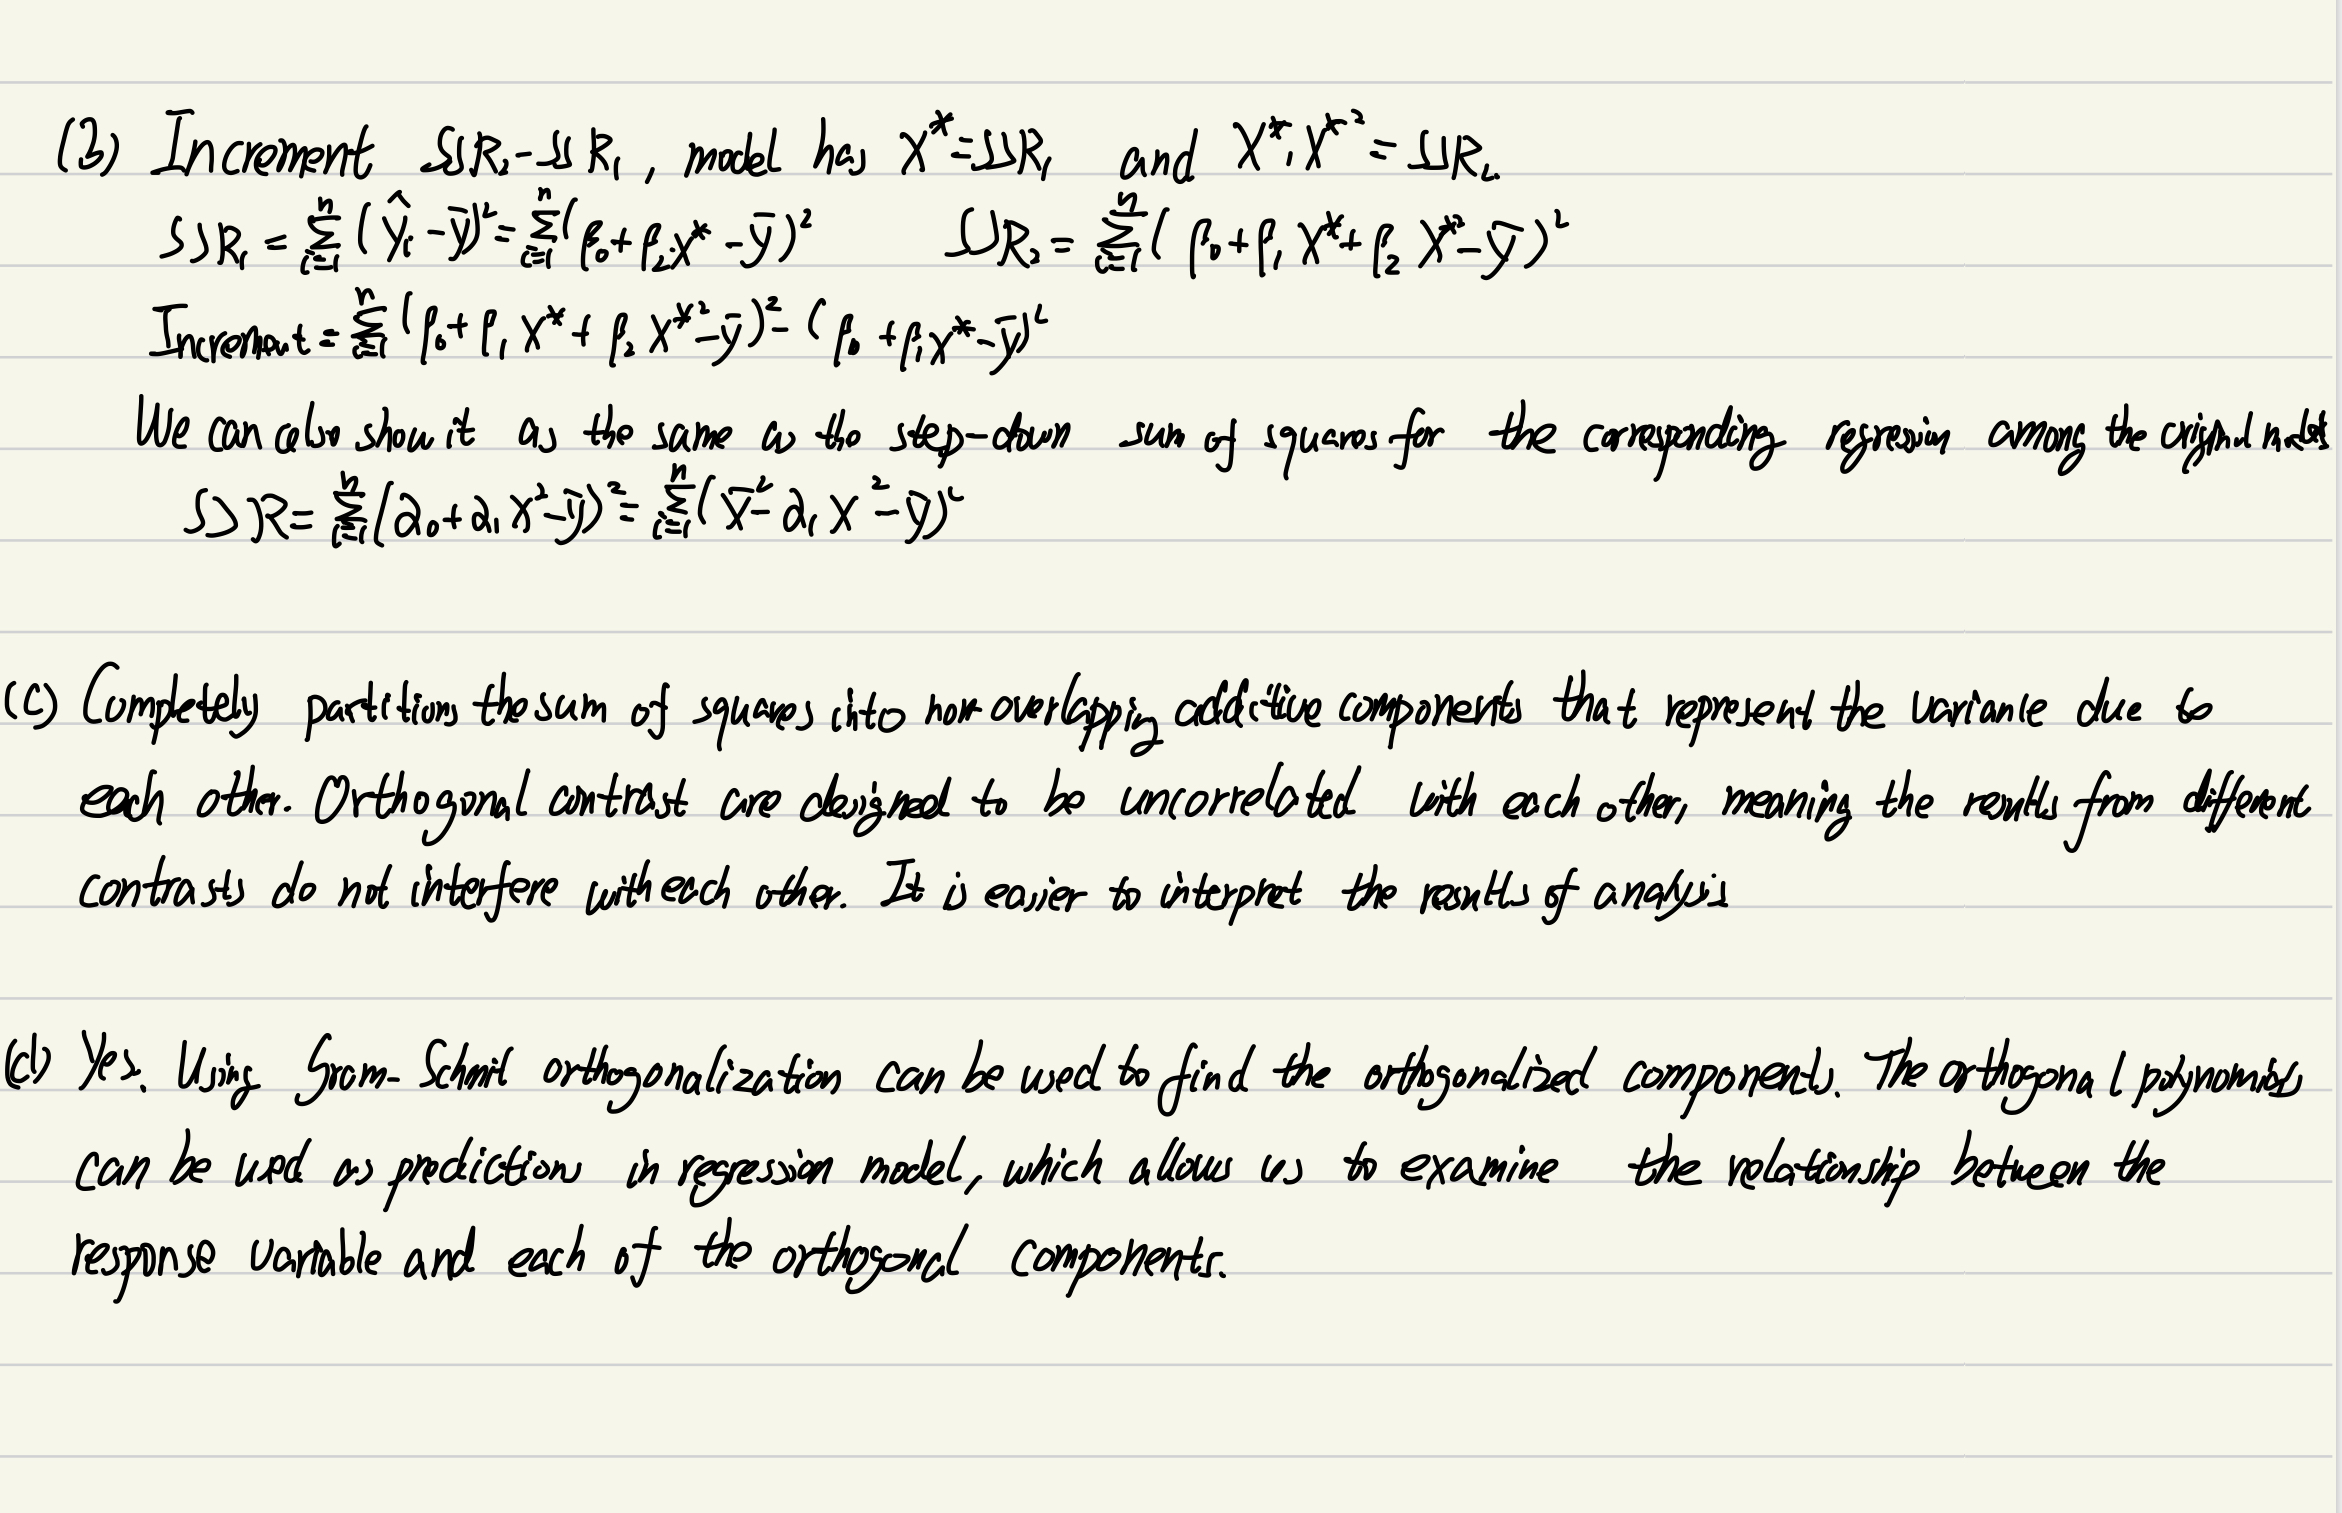 (B) Increment SSR₂-SSR₁, model has X*=SSR₁ and X*, X*² = SSR₂.
SSR₁ = Σⁿᵢ₌₁ (ŷᵢ - ȳ)² = Σⁿᵢ₌₁ (β₀+β₂X* - ȳ)² SSR₂ = Σⁿᵢ₌₁ ( β₀+β₁X*+β₂X*² - ȳ )²
Increment = Σⁿᵢ₌₁ (β₀+β₁X*+β₂X*² - ȳ)² - (β₀+β₁X* - ȳ)²
We can also show it as the same as the step-down sum of squares for the corresponding regression among the original models
SSR = Σⁿᵢ₌₁ (α₀+α₁X² - ȳ)² = Σⁿᵢ₌₁ (x̄² - α₁X² - ȳ)²
(C) Completely partitions the sum of squares into non-overlapping additive components that represent the variance due to
each other. Orthogonal contrast are designed to be uncorrelated with each other, meaning the results from different
contrasts do not interfere with each other. It is easier to interpret the results of analysis
(d) Yes. Using Gram-Schmit orthogonalization can be used to find the orthogonalized components. The orthogonal polynomials
can be used as predictions in regression model, which allows us to examine the relationship between the
response variable and each of the orthogonal components.